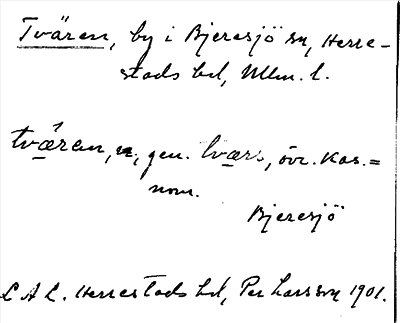 Tvären, by i Bjeresjö sn, Herre-
stads hd, Mlm. l.
tvǽren, n, gen. tværs, övr. kas. =
nom.
Bjeresjö
L A L. Herrestads hd, Per Larsson 1901.